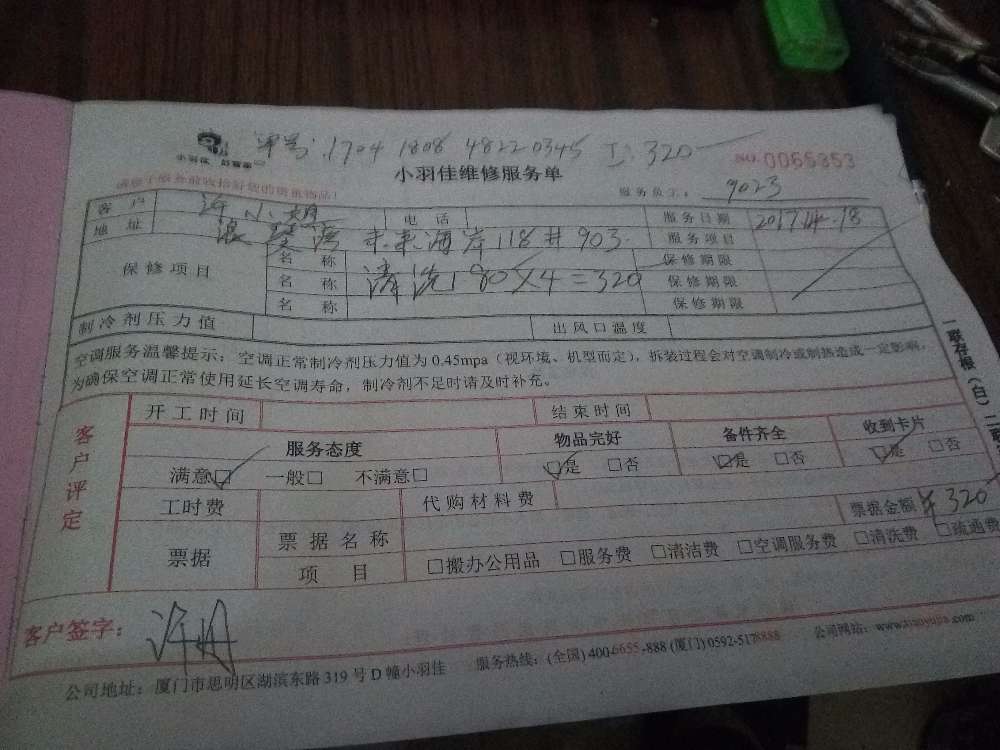 单号:1704 1808 48220345 I:320
小羽佳 NO.0065353
小羽佳维修服务单
服务员工: 9023
客户 许小姐 电话 服务日期 2017.4.18
地址 未来海岸118#903 服务项目
保修项目 名称 保修期限
名称 清洗180×4=320 保修期限
名称 保修期限
制冷剂压力值 出风口温度
空调服务温馨提示:空调正常制冷剂压力值为0.45mpa(视环境、机型而定),拆装过程会对空调制冷或制热造成一定影响,
为确保空调正常使用延长空调寿命,制冷剂不足时请及时补充。
客户评定 开工时间 结束时间
服务态度 物品完好 备件齐全 收到卡片
满意☑ 一般□ 不满意□ ☑是 □否 ☑是 □否 ☑是 □否
工时费 代购材料费 票据金额 ¥320
票据 票据名称
项目 □搬办公用品 □服务费 □清洁费 □空调服务费 □清洗费 □疏通费
客户签字:
公司地址:厦门市思明区湖滨东路319号D幢小羽佳 服务热线:(全国)400-6655-888(厦门)0592-5178888 公司网站:www.xiaoyujia.com
一联存根(白)二联